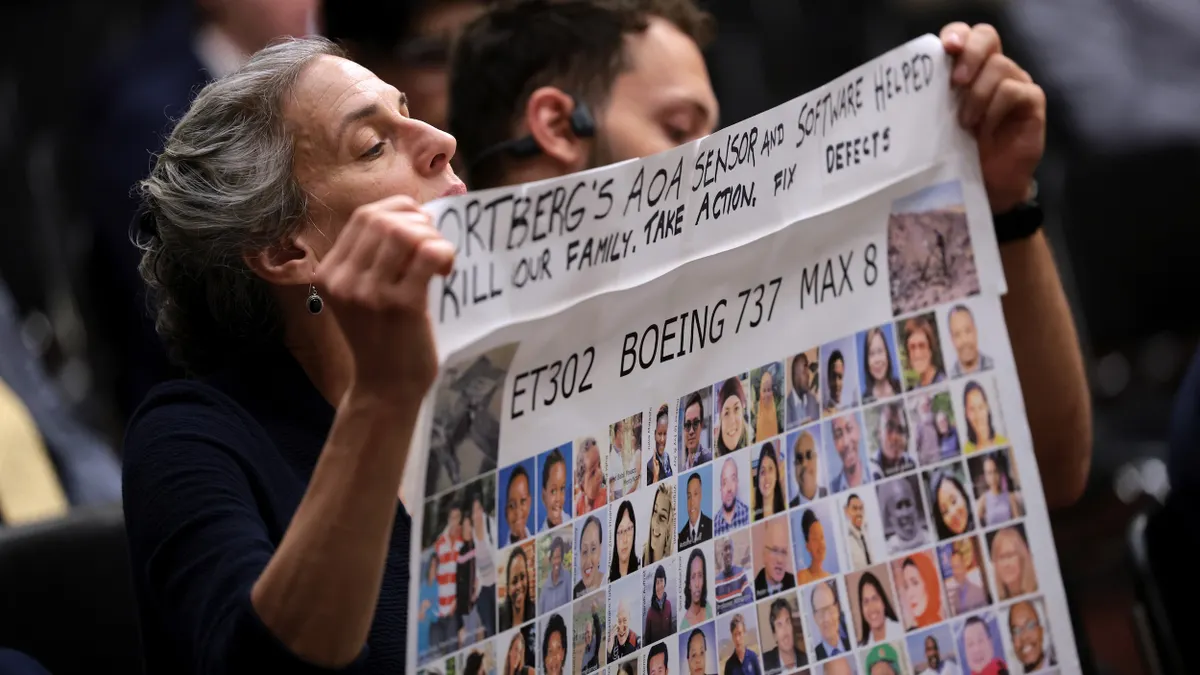 ORTBERG'S AOA SENSOR AND SOFTWARE HELPED
KILL OUR FAMILY. TAKE ACTION. FIX DEFECTS
ET302 BOEING 737 MAX 8